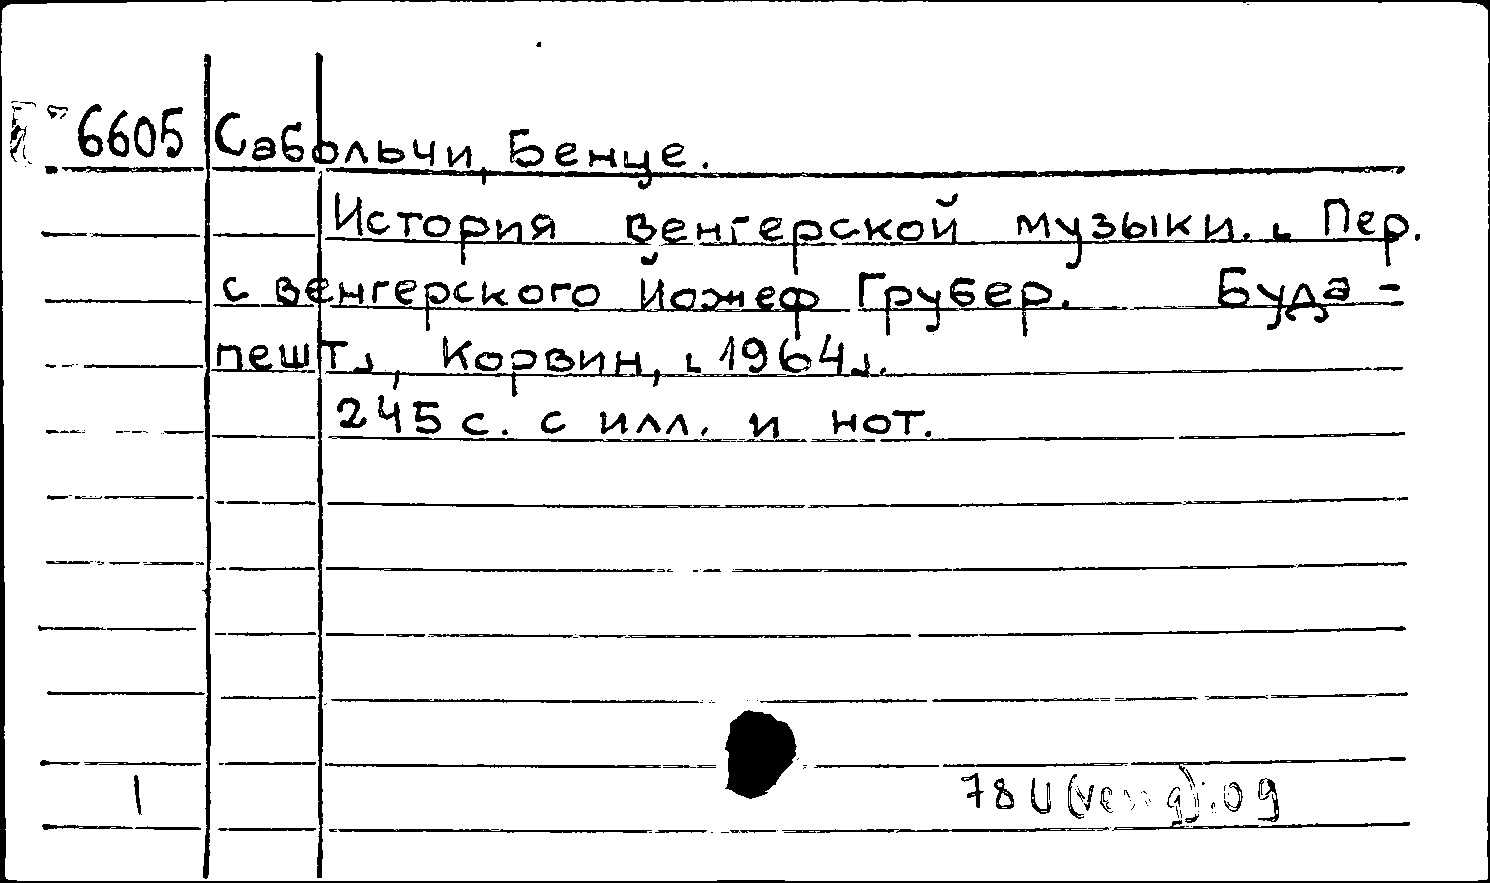 6605 Сабольчи, Бенце.
История венгерской музыки. ⌞ Пер.
с венгерского Йожеф Грубер. Буда=
пешт⌟, Корвин, ⌞1964⌟.
245 с. с илл. и нот.
1 78U(veng):09